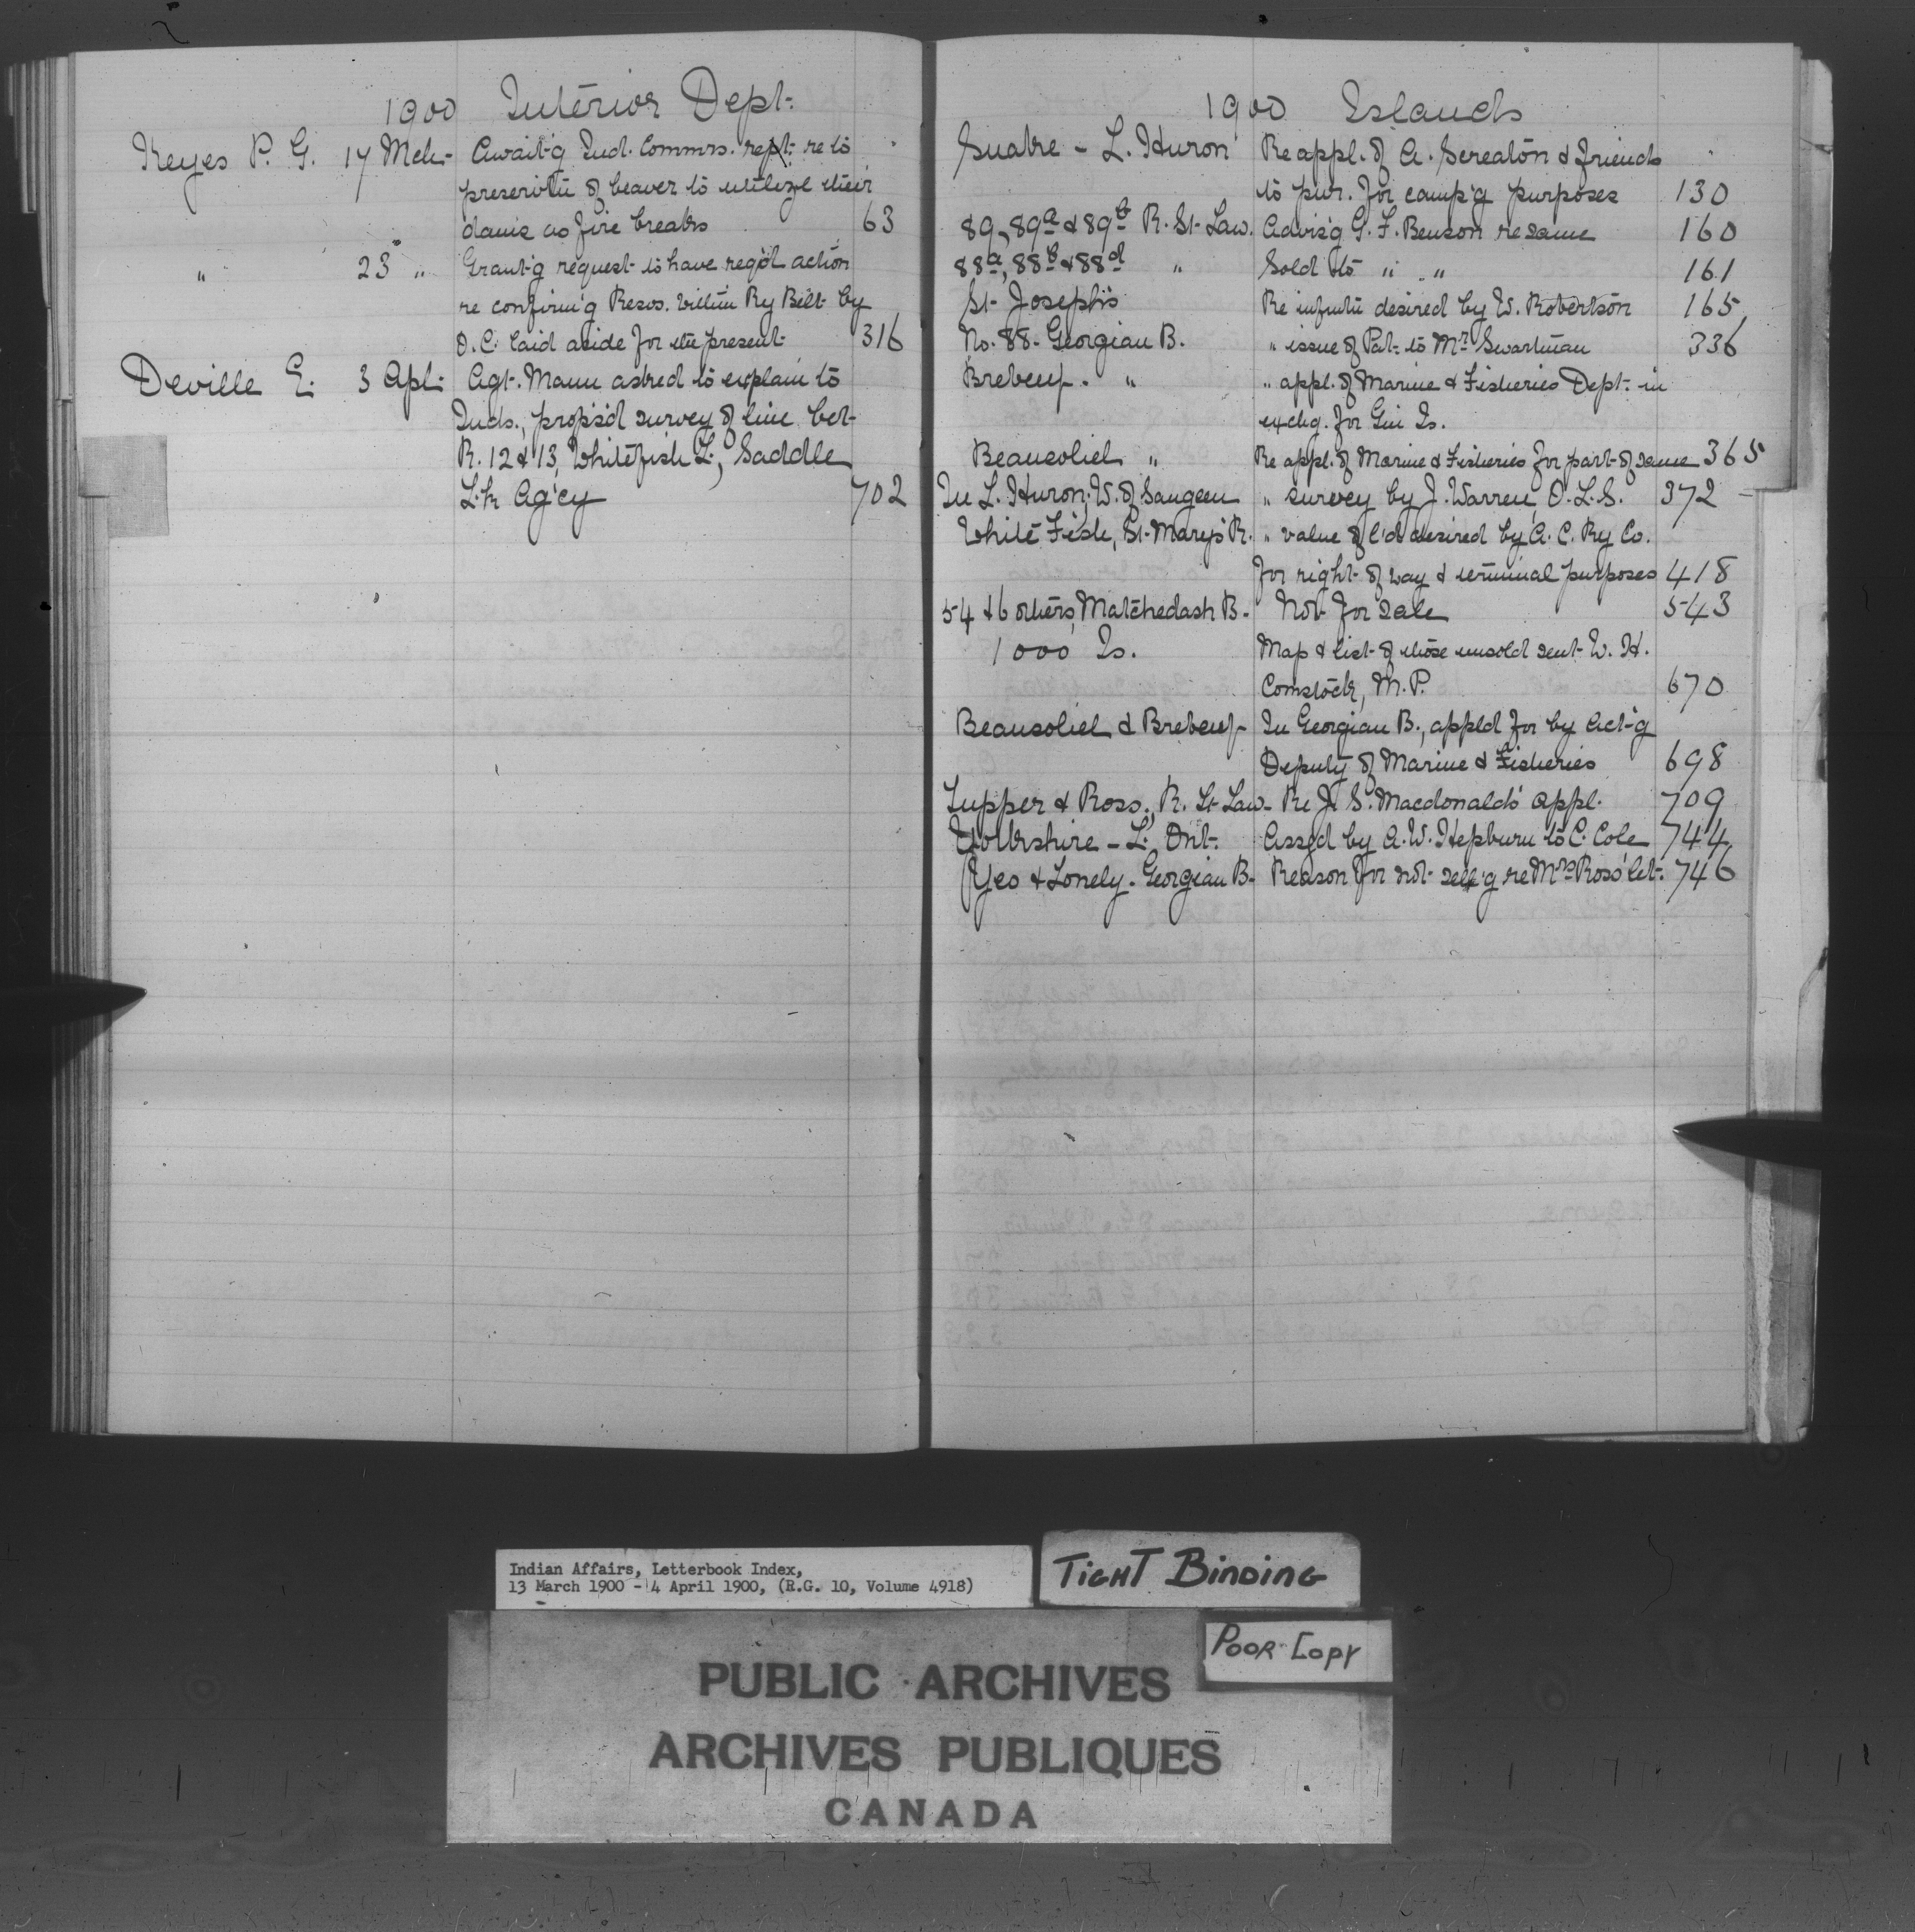 1900 Interior Dept.
Keyes P. G. 17 Mch. Await'g Ind. Commrs. rept. re to
preserv'tn of beaver to utilize their
dams as fire breaks 63
" 23 " Grant'g request to have reg'd action
re confirm'g Resvs. within Ry Belt by
O.C. laid aside for the present 316
Deville E. 3 Apl. Agt. Mann asked to explain to
Inds., propos'd survey of line bet.
R. 12 & 13, Whitefish L., Saddle
L.k Ag'cy 702
1900 Islands
Snake - L. Huron Re appl. of A. Screaton & friends
to pur. for camp'g purposes 130
89, 89a & 89b R. St. Law. Advis'g G. F. Benson re same 160
88a, 88b & 88d " Sold to " " 161
St. Joseph's Re infmtn desired by W. Robertson 165
No. 88 - Georgian B. " issue of Pat. to Mr Swartman 336
Brebeuf - " " appl. of Marine & Fisheries Dept. in
exchg. for Gin Is.
Beausoliel " Re appl. of Marine & Fisheries for part of same 365
In L. Huron, W. of Saugeen " survey by J. Warren, O.L.S. 372
White Fish, St. Mary's R. " value of l'd desired by A. C. Ry Co.
for right of way & terminal purposes 418
54 & 6 others, Matchedash B. Not for sale 543
1000 Is. Map & list of those unsold sent W. H.
Comstock, M.P. 670
Beausoliel & Brebeuf In Georgian B., appl'd for by Act'g
Deputy of Marine & Fisheries 698
Tupper & Ross, R. St. Law. Re J. S. Macdonald's appl. 709
Yorkshire - L. Ont. Assgd by A. W. Hepburn to C. Cole 744
Yeo & Lonely - Georgian B. Reason for not sell'g re Mrs Ross' let. 746
Indian Affairs, Letterbook Index,
13 March 1900 - 4 April 1900, (R.G. 10, Volume 4918)
TIGHT BINDING
POOR COPY
PUBLIC ARCHIVES
ARCHIVES PUBLIQUES
CANADA